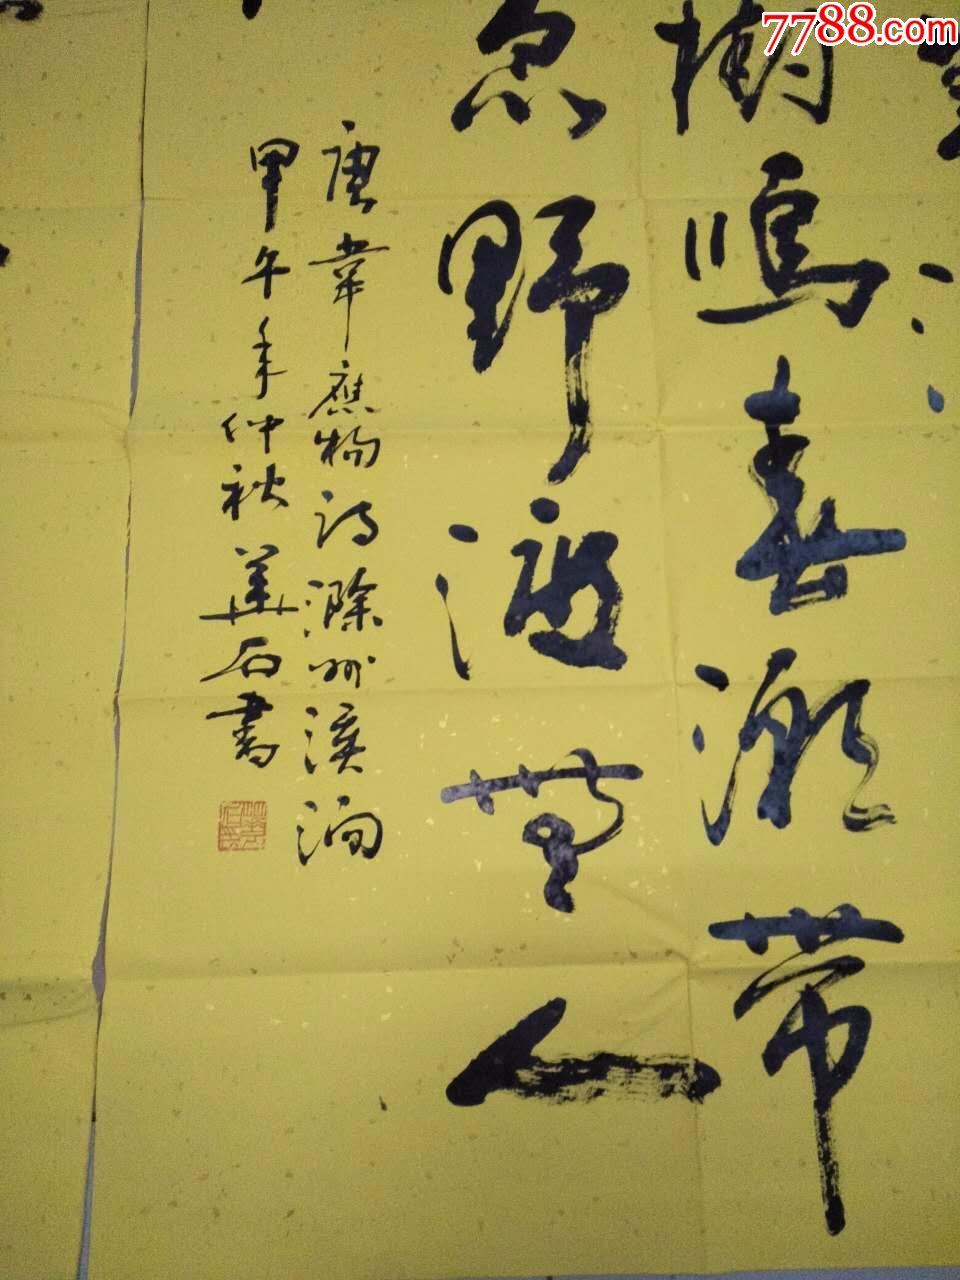 7788.com
樹鳴春潮帶
急野渡無人
唐韋應物詩滁州溪澗
甲午年仲秋石書